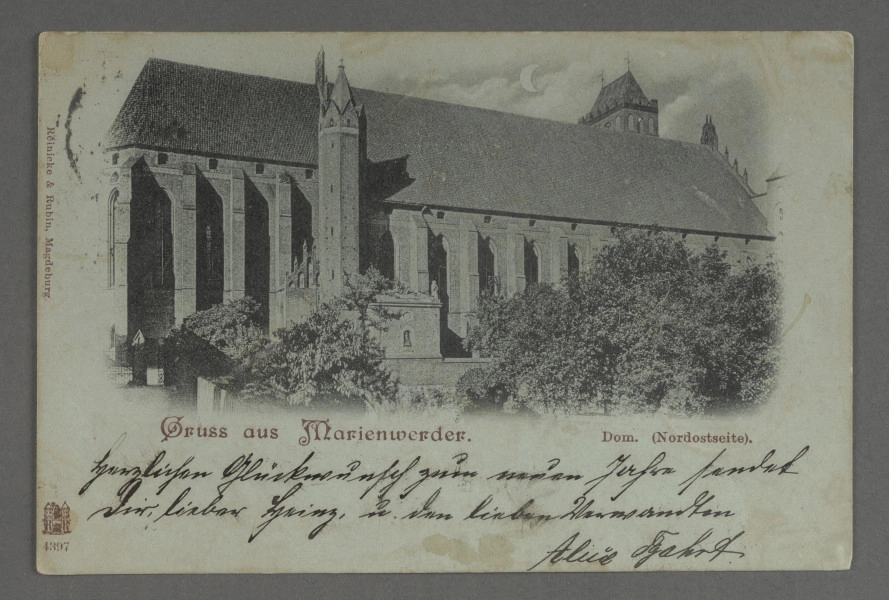 Reinicke & Rubin, Magdeburg.
Gruss aus Marienwerder.
Dom. (Nordostseite).
Herzlichen Glückwunsch zum neuen Jahre sendet
Dir, lieber Heinz, u. den lieben Verwandten
R R
4397